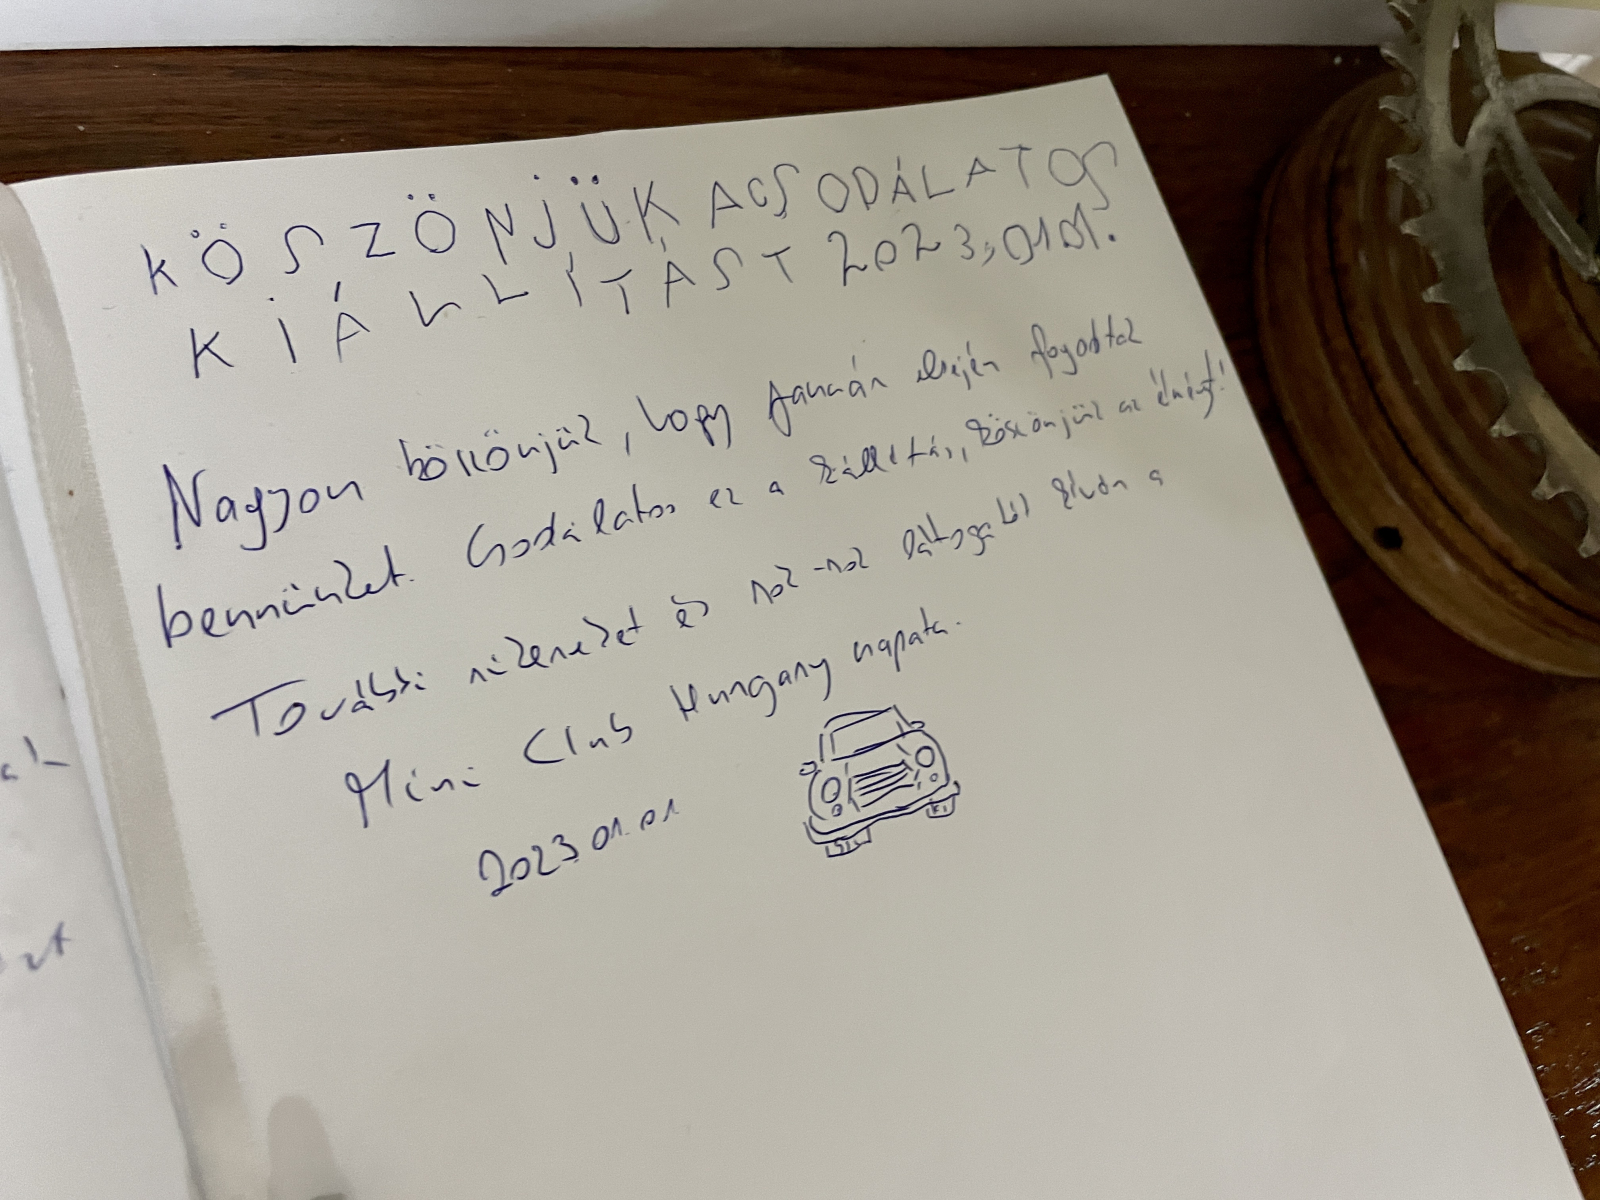 KÖSZÖNJÜK A CSODÁLATOS
KIÁLLÍTÁST 2023.01.01.
Nagyon köszönjük, hogy Január elsején fogadtak
bennünket. Csodálatos ez a kiállítás, köszönjük az élményt!
További sikereket és sok-sok látogatót kíván a
Mini Club Hungary csapata.
2023.01.01